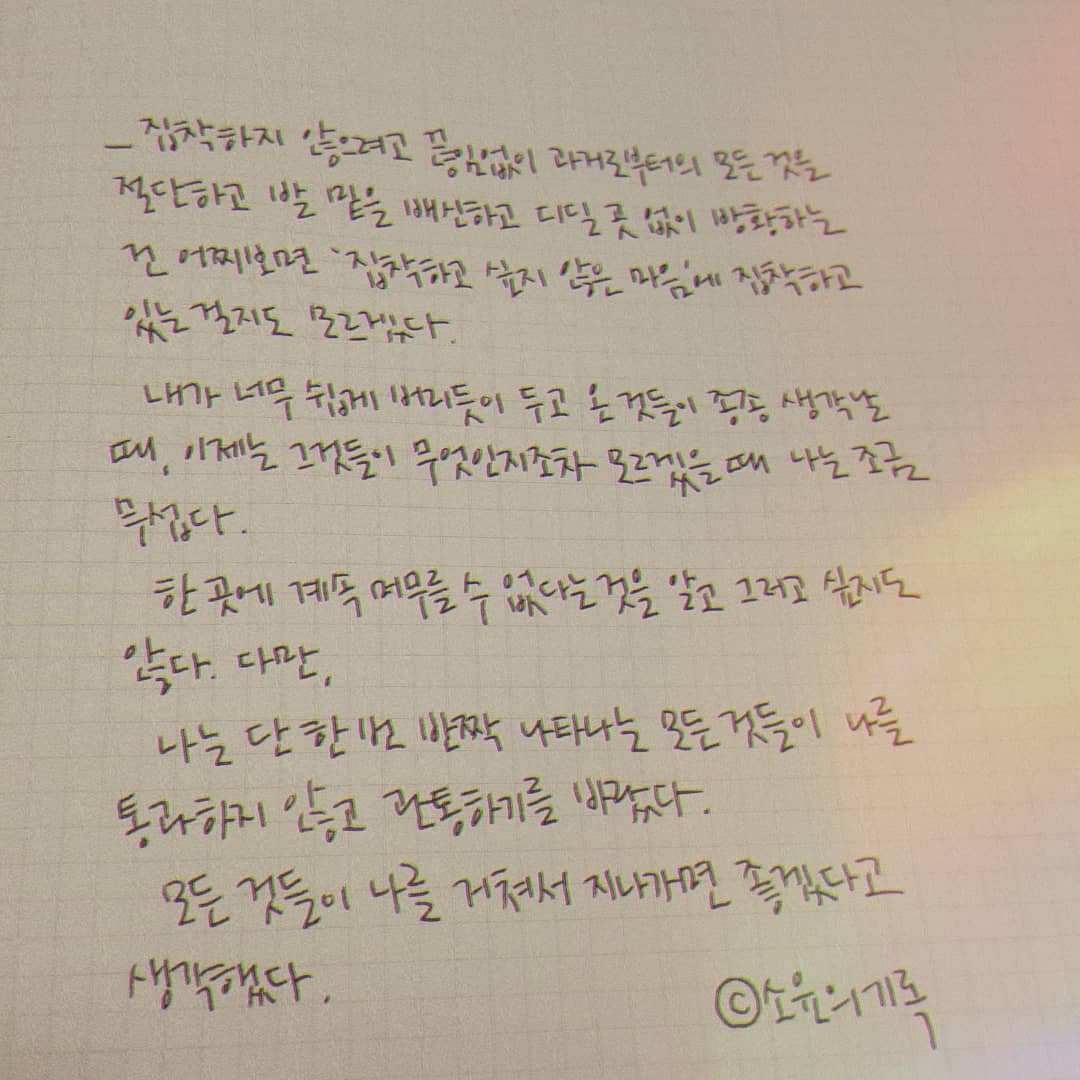 – 집착하지 않으려고 끊임없이 과거로부터의 모든 것을
절단하고 발 밑을 배신하고 디딜 곳 없이 방황하는
건 어찌보면 '집착하고 싶지 않은 마음'에 집착하고
있는걸지도 모르겠다.
내가 너무 쉽게 버리듯이 두고 온 것들이 종종 생각날
때, 이제는 그것들이 무엇인지조차 모르겠을 때 나는 조금
무섭다.
한 곳에 계속 머무를 수 없다는 것을 알고 그러고 싶지도
않다. 다만,
나는 단 한번 반짝 나타나는 모든 것들이 나를
통과하지 않고 관통하기를 바랐다.
모든 것들이 나를 거쳐서 지나가면 좋겠다고
생각했다.
©소윤의기록